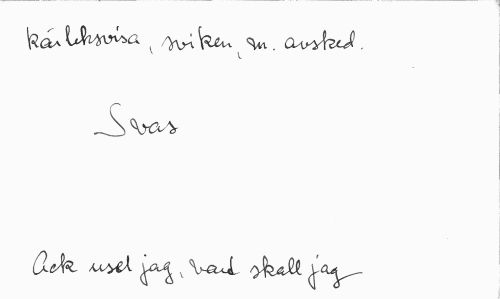 kärleksvisa, sviken, m. avsked.
Svas
Ack usel jag, vad skall jag